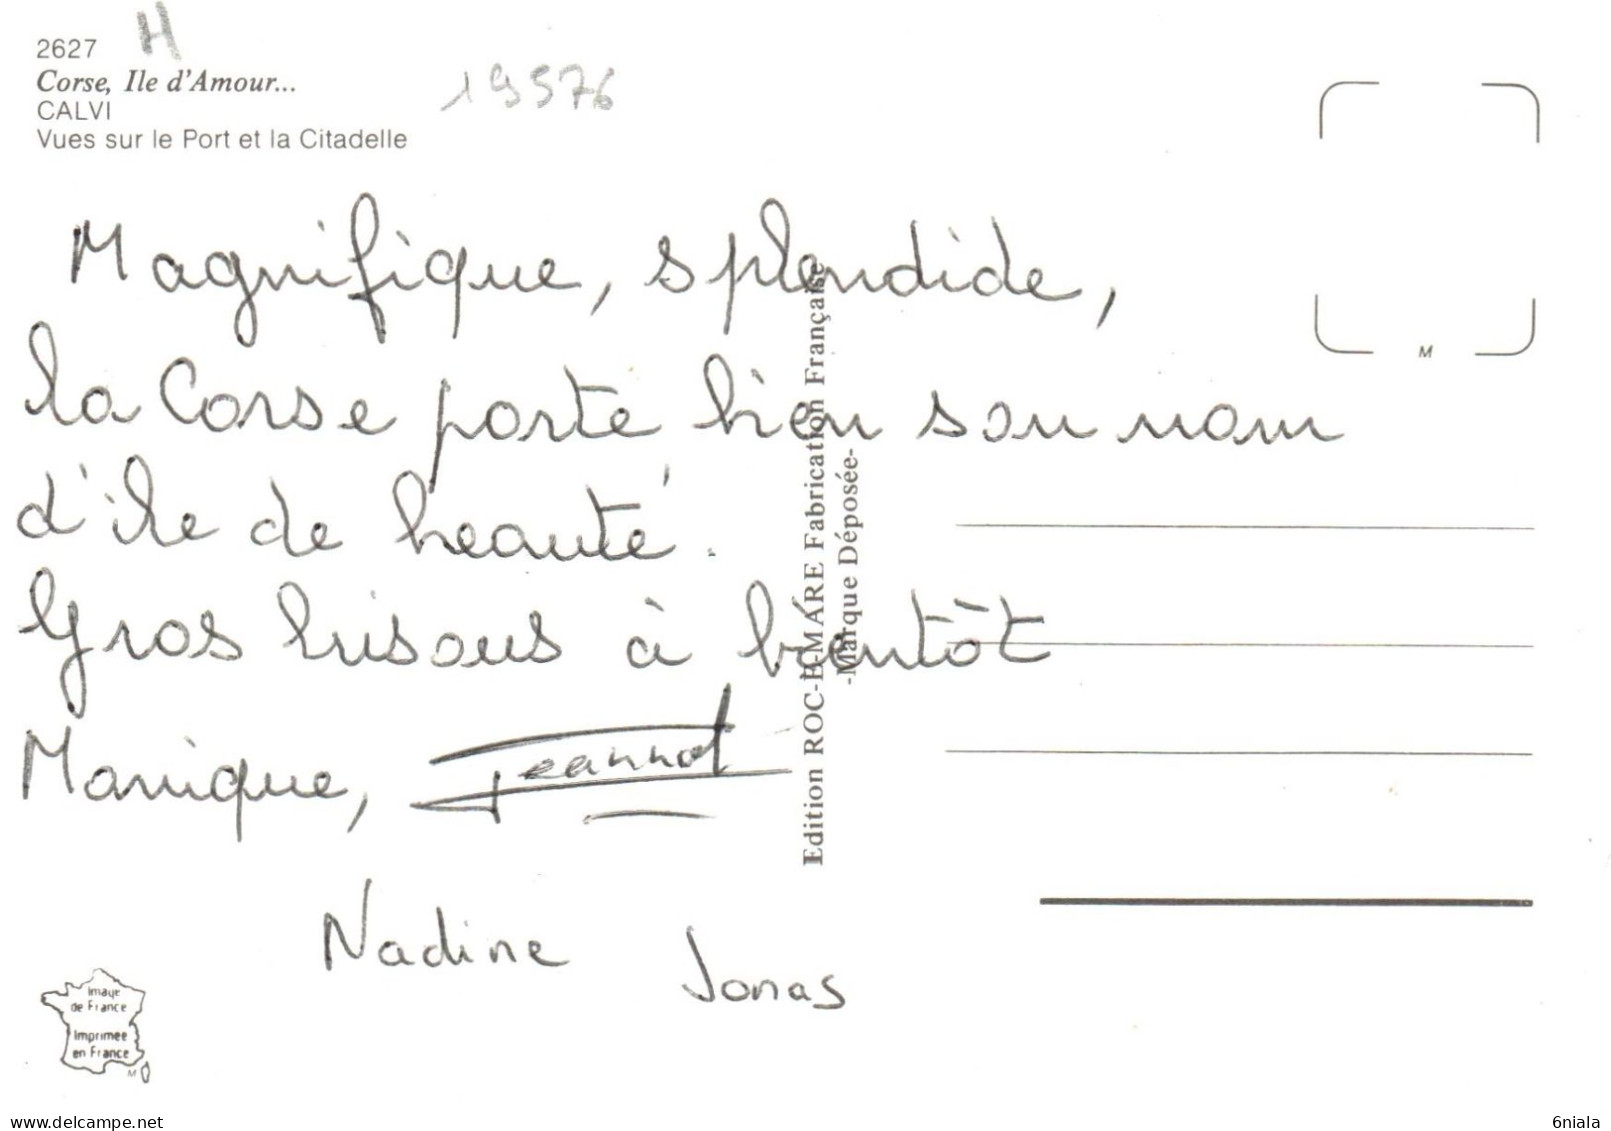 2627
H
19576
Corse, Ile d'Amour...
CALVI
Vues sur le Port et la Citadelle
Magnifique, splendide,
la Corse porte bien son nom
d'île de beauté.
Gros bisous à bientôt
Monique, Jeannot
Nadine
Jonas
Edition ROC-E-MARE Fabrication Française
-Marque Déposée-
M
Image
de France
Imprimée
en France
M
delcampe.net
6niala